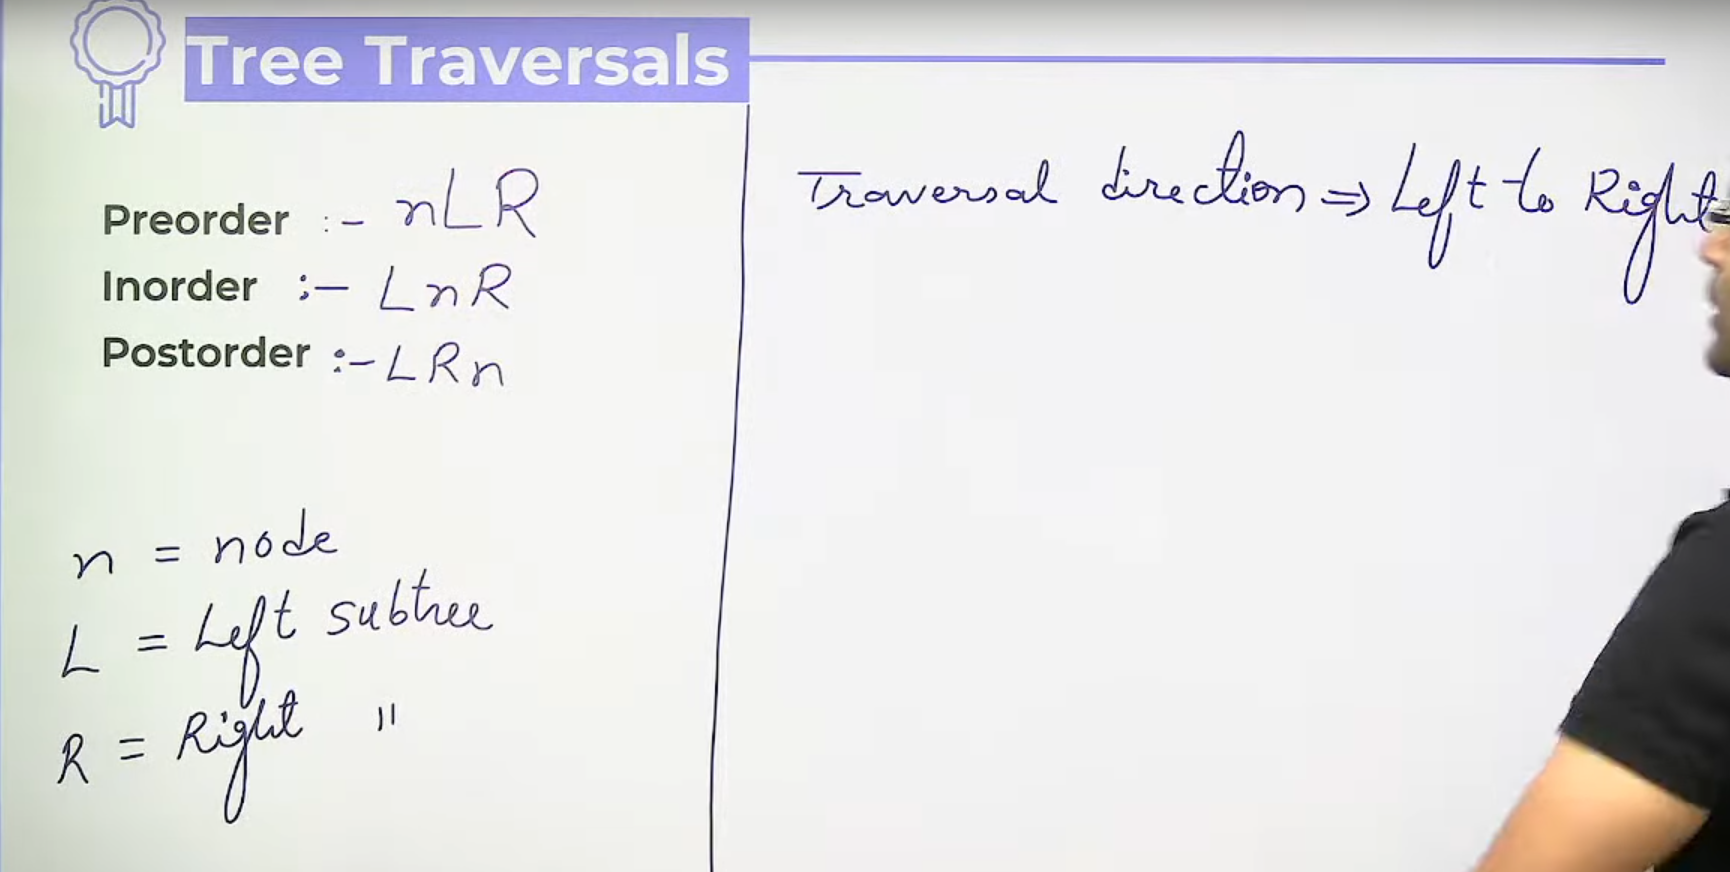 Tree Traversals
Preorder :- nLR
Inorder :- LnR
Postorder :- LRn
n = node
L = Left subtree
R = Right "
Traversal direction ⇒ Left to Right